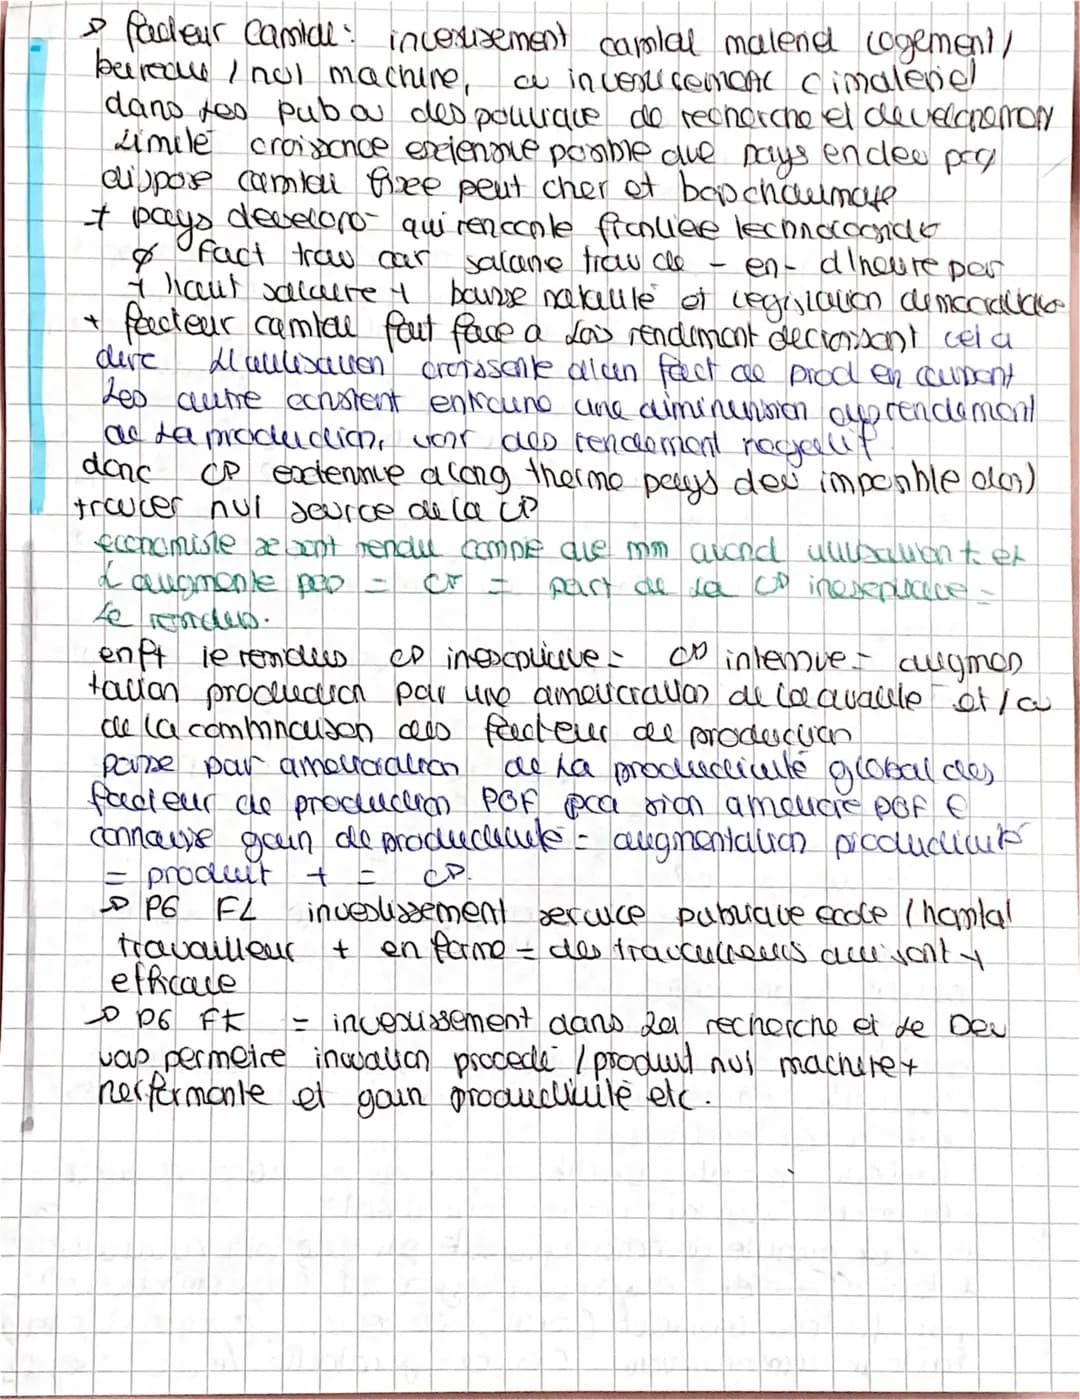 → facteur Capital : investissement capital materiel logement /
bureau / nvl machine, ou investissement immateriel
dans les pub ou des politique de recherche et developpement
limité croissance extensive possible que pays en dev pcq
dispose capital fixe peut cher et bcp chaumage
≠ pays develop- qui rencontre frontiere technologide
∅ fact trav car salarie trav de - en - d'heure par
+ haut salaire + baisse natalité et legislation
+ facteur capital fait face a lois rendement decroissant cela
dire L'utilisation croissante d'un fact de prod en
Les autre constent entraine une diminution du rendement
de la production, voir des rendement negatif
donc CP extensive a long therme pays dev imposible alors
trouver nvl source de la CP
economiste se sont rendu compte que mm quand utilisation t et
L augmente peu = Cr = part de la CP inexepliquee =
Le residus.
en ft le residus CP inexplique = CP intensive = augmen
tation production par une amelioration de la qualité et / ou
de la combinaison des facteur de production
passe par amelioration de la productivité global des
facteur de production PGF pca sion ameliore PGF e
connaise gain de productivité = augmentation productivité
= produit + = CP.
→ PG FL investissement service publique ecole / hopital
travailleur + en forme = des travailleurs qui sont +
efficace
→ PG FK = investissement dans la recherche et le Dev
vap permetre inovation procédé / produit nvl machine +
performante et gain productivité etc.